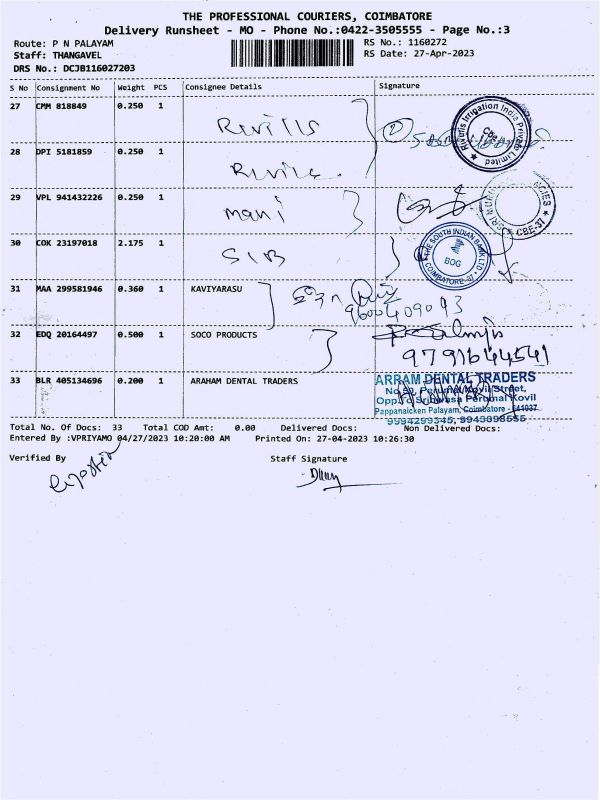 THE PROFESSIONAL COURIERS, COIMBATORE
Delivery Runsheet - MO - Phone No.:0422-3505555 - Page No.:3
Route: P N PALAYAM
Staff: THANGAVEL
DRS No.: DCJB116027203
RS No.: 1160272
RS Date: 27-Apr-2023
S No Consignment No Weight PCS Consignee Details Signature
27 CMM 818849 0.250 1
Rivulis Irrigation India Private Limited
Cbe
28 DPI 5181859 0.250 1
29 VPL 941432226 0.250 1 mani
CBE-37
30 COK 23197018 2.175 1 SIB
THE SOUTH INDIAN BANK LTD
BOG
COIMBATORE-37
31 MAA 299581946 0.360 1 KAVIYARASU
9600409093
32 EDQ 20164497 0.500 1 SOCO PRODUCTS
9791644541
33 BLR 405134696 0.200 1 ARAHAM DENTAL TRADERS
ARRAM DENTAL TRADERS
No.50, Perumal Kovil Street,
Opp.to Srinivasa Perumal Kovil
Pappanaicken Palayam, Coimbatore - 641037
9994299345, 9943098555
Total No. Of Docs: 33 Total COD Amt: 0.00 Delivered Docs: Non Delivered Docs:
Entered By :VPRIYAMO 04/27/2023 10:20:00 AM Printed On: 27-04-2023 10:26:30
Verified By Staff Signature